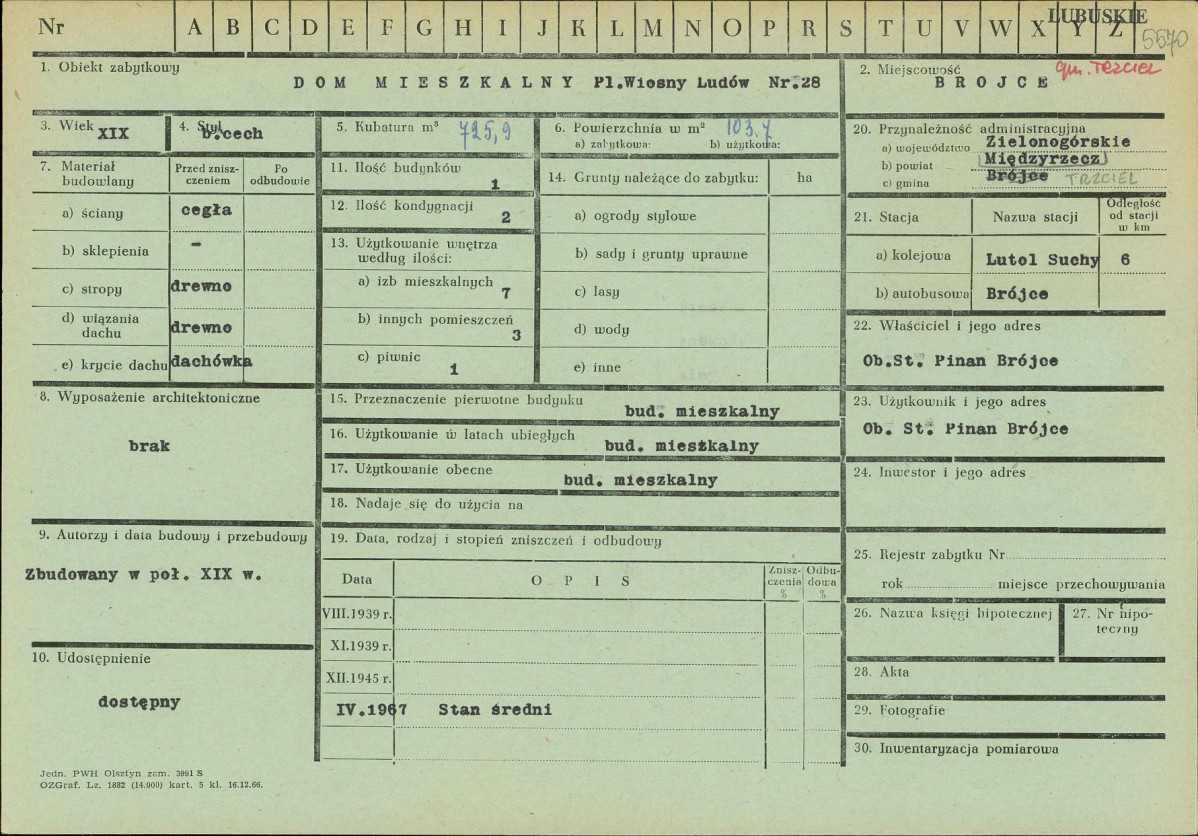 Nr A B C D E F G H I J K L M N O P R S T U V W X Y Z
LUBUSKIE
5570
1. Obiekt zabytkowy
DOM MIESZKALNY Pl.Wiosny Ludów Nr.28
2. Miejscowość
gm. TRZCIEL
BROJCE
3. Wiek
XIX
4. Styl
b.cech
5. Kubatura m³ 725,9
6. Powierzchnia w m² 103.7
a) zabytkowa: b) użytkowa:
7. Materiał budowlany
Przed znisz-
czeniem
Po
odbudowie
a) ściany cegła
b) sklepienia –
c) stropy drewno
d) wiązania
dachu drewno
e) krycie dachu dachówka
11. Ilość budynków
1
12. Ilość kondygnacji
2
13. Użytkowanie wnętrza
według ilości:
a) izb mieszkalnych
7
b) innych pomieszczeń
3
c) piwnic
1
14. Grunty należące do zabytku: ha
a) ogrody stylowe
b) sady i grunty uprawne
c) lasy
d) wody
e) inne
20. Przynależność administracyjna
a) województwo Zielonogórskie
b) powiat Międzyrzecz
c) gmina Brójce TRZCIEL
21. Stacja Nazwa stacji
Odległość
od stacji
w km
a) kolejowa Lutol Suchy 6
b) autobusowa Brójce
22. Właściciel i jego adres
Ob.St. Pinan Brójce
23. Użytkownik i jego adres
Ob. St. Pinan Brójce
24. Inwestor i jego adres
8. Wyposażenie architektoniczne
brak
15. Przeznaczenie pierwotne budynku
bud. mieszkalny
16. Użytkowanie w latach ubiegłych
bud. mieszkalny
17. Użytkowanie obecne
bud. mieszkalny
18. Nadaje się do użycia na
9. Autorzy i data budowy i przebudowy
Zbudowany w poł. XIX w.
19. Data, rodzaj i stopień zniszczeń i odbudowy
Data OPIS
Znisz-
czenia
%
Odbu-
dowa
%
VIII.1939 r.
XI.1939 r.
XII.1945 r.
IV.1967 Stan średni
10. Udostępnienie
dostępny
25. Rejestr zabytku Nr
rok miejsce przechowywania
26. Nazwa księgi hipotecznej
27. Nr hipo-
teczny
28. Akta
29. Fotografie
30. Inwentaryzacja pomiarowa
Jedn. PWH Olsztyn zam. 3991 S
OZGraf. Lz. 1882 (14.000) kart. 5 kl. 16.12.66.